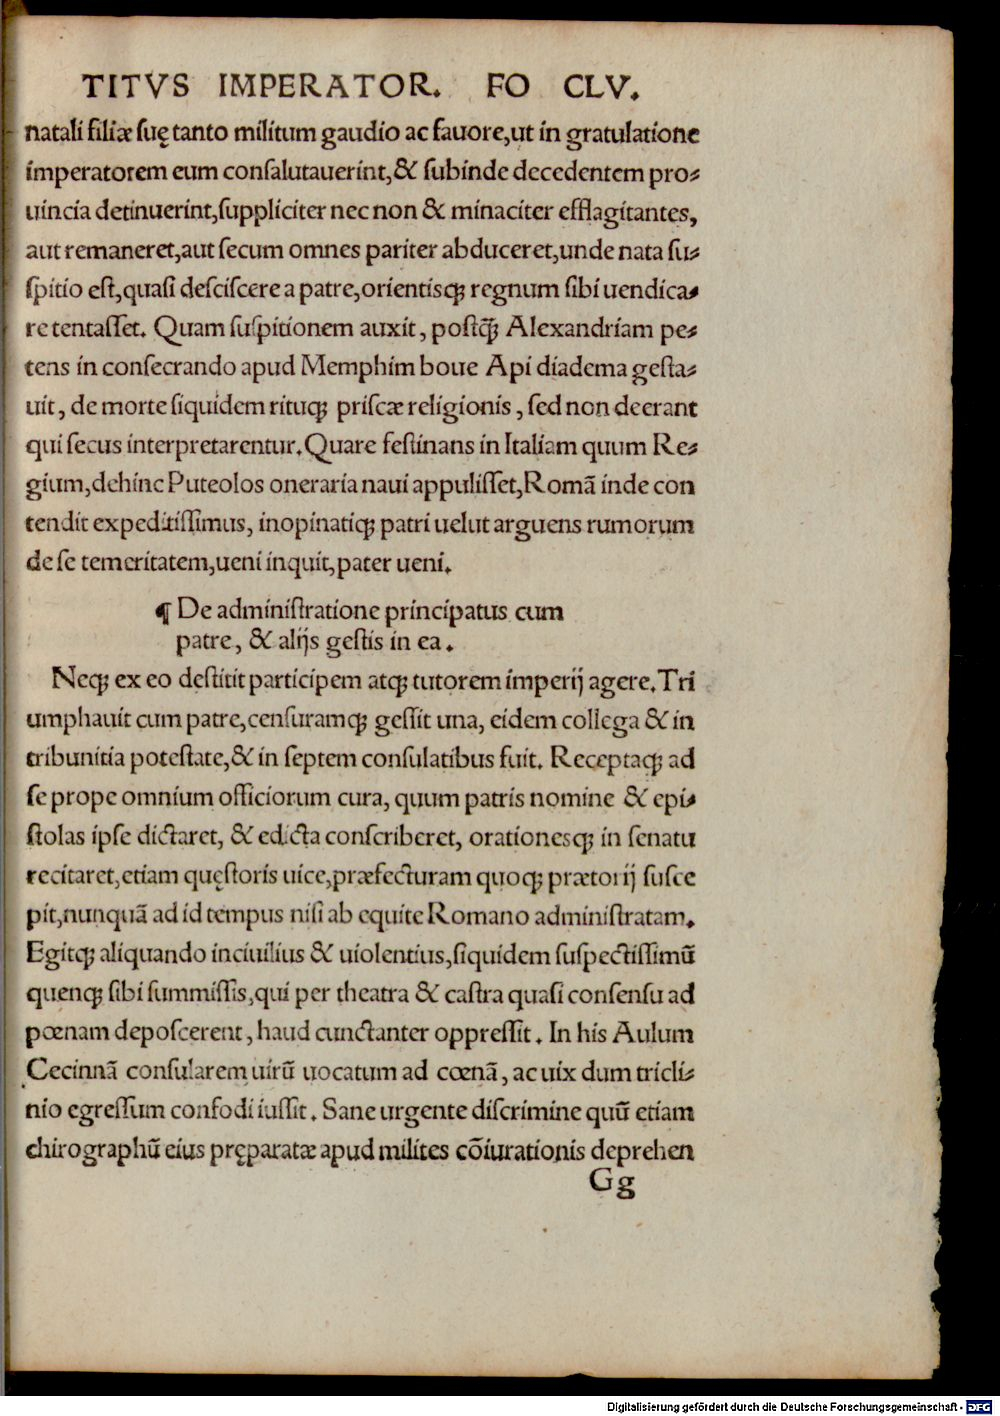 TITVS IMPERATOR. FO CLV.
natali filiæ ſuę tanto militum gaudio ac fauore,ut in gratulatione
imperatorem eum conſalutauerint,& ſubinde decedentem pro⸗
uincia detinuerint,ſuppliciter nec non & minaciter efflagitantes,
aut remaneret,aut ſecum omnes pariter abduceret,unde nata ſu⸗
ſpitio eſt,quaſi deſciſcere a patre,orientisqꝫ regnum ſibi uendica⸗
re tentaſſet. Quam ſuſpitionem auxit, poſtq̃ꝫ Alexandriam pe⸗
tens in conſecrando apud Memphim boue Api diadema geſta⸗
uit, de morte ſiquidem rituqꝫ priſcæ religionis, ſed non deerant
qui ſecus interpretarentur. Quare feſtinans in Italiam quum Re⸗
gium,dehinc Puteolos oneraria naui appuliſſet,Romã inde con
tendit expeditiſſimus, inopinatiqꝫ patri uelut arguens rumorum
de ſe temeritatem,ueni inquit,pater ueni.
¶ De adminiſtratione principatus cum
patre, & alijs geſtis in ea.
Neqꝫ ex eo deſtitit participem atqꝫ tutorem imperij agere. Tri
umphauit cum patre,cenſuramqꝫ geſſit una, eidem collega & in
tribunitia poteſtate,& in ſeptem conſulatibus fuit. Receptaqꝫ ad
ſe prope omnium officiorum cura, quum patris nomine & epi⸗
ſtolas ipſe dictaret, & edicta conſcriberet, orationesqꝫ in ſenatu
recitaret,etiam quęſtoris uice,præfecturam quoqꝫ prætorij ſuſce
pit,nunquã ad id tempus niſi ab equite Romano adminiſtratam.
Egitqꝫ aliquando inciuilius & uiolentius,ſiquidem ſuſpectiſſimũ
quenqꝫ ſibi ſummiſſis,qui per theatra & caſtra quaſi conſenſu ad
pœnam depoſcerent, haud cunctanter oppreſſit. In his Aulum
Cecinnã conſularem uirũ uocatum ad cœnã, ac uix dum tricli⸗
nio egreſſum confodi iuſſit. Sane urgente diſcrimine quũ etiam
chirographũ eius pręparatæ apud milites cõiurationis deprehen
Gg
Digitalisierung gefördert durch die Deutsche Forschungsgemeinschaft - DFG